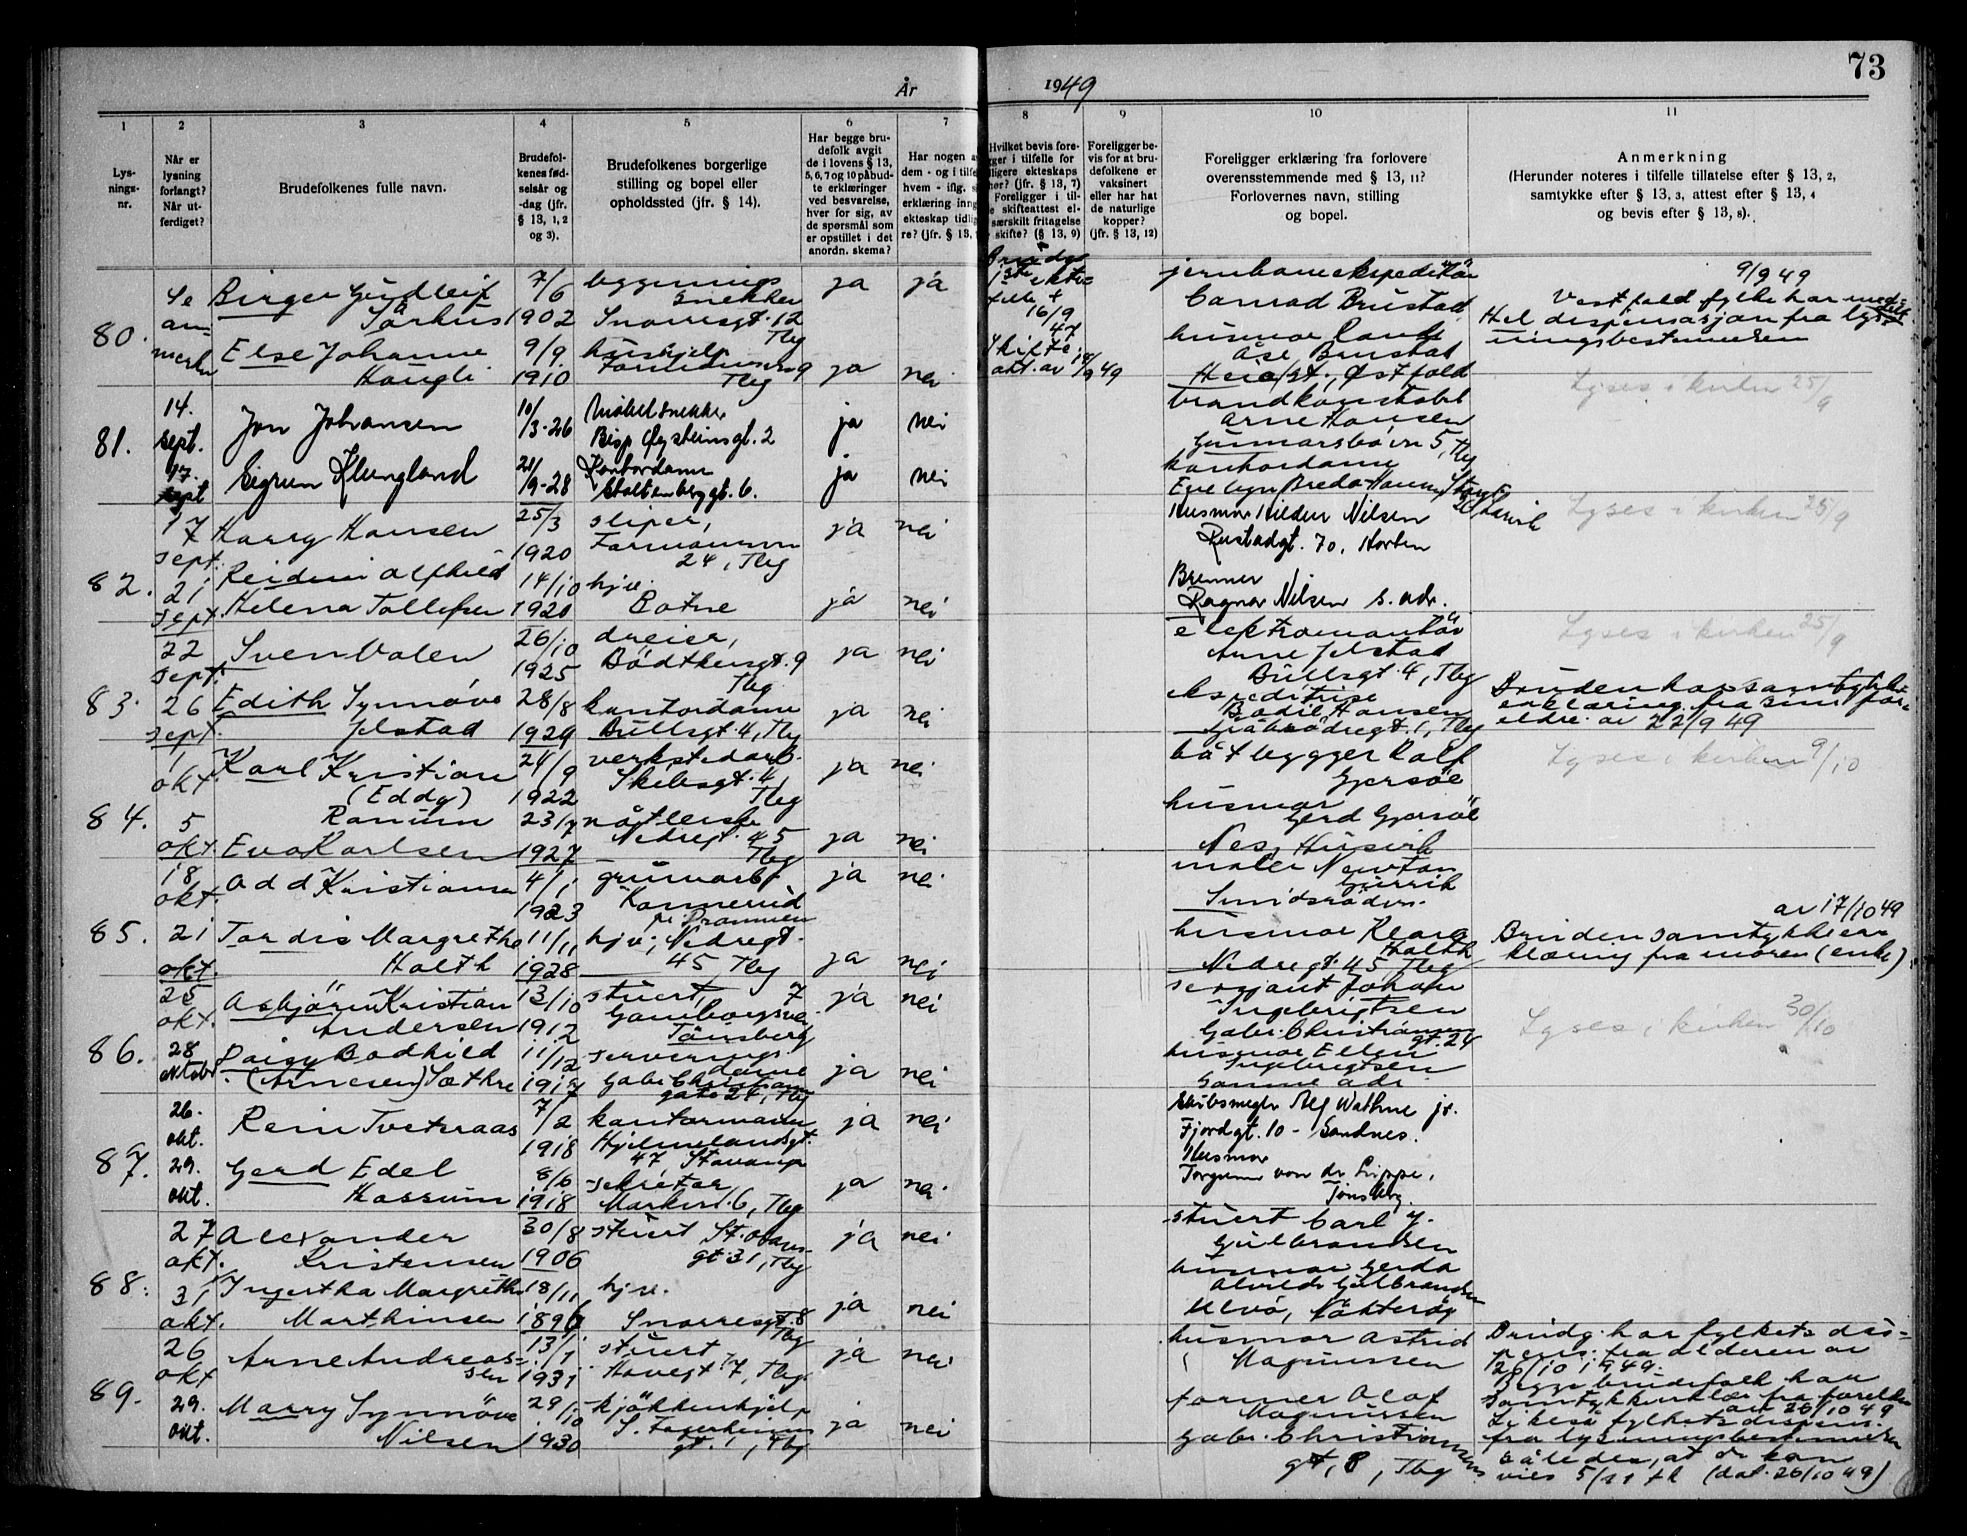 73
År 1949
1
Lys-
nings-
nr.
2
Når er
lysning
forlangt?
Når ut-
ferdiget?
3
Brudefolkenes fulle navn.
4
Brudefol-
kenes fød-
selsår og
-dag (jfr.
§ 13, 1, 2
og 3).
5
Brudefolkenes borgerlige
stilling og bopel eller
opholdssted (jfr. § 14).
6
Har begge bru-
defolk avgit
de i lovens § 13,
5, 6, 7 og 10 påbud-
te erklæringer
ved besvarelse,
hver for sig, av
de spørsmål som
er opstillet i det
anordn. skema?
7
Har nogen a
dem - og i tilfe
hvem - iflg. s
erklæring inng
ekteskap tidlig
re? (jfr. § 13,
8
Hvilket bevis fore-
gger i tilfelle for
ligere ekteskaps
hør? (jfr. § 13, 7)
Foreligger i til-
e skifteattest el-
særskilt fritagelse
skifte? (§ 13, 9)
9
Foreligger be-
vis for at bru-
defolkene er
vaksinert
eller har hat
de naturlige
kopper?
(jfr. § 13, 12)
10
Foreligger erklæring fra forlovere
overensstemmende med § 13, 11?
Forlovernes navn, stilling
og bopel.
11
Anmerkning
(Herunder noteres i tilfelle tillatelse efter § 13, 2,
samtykke efter § 13, 3, attest efter § 13, 4
og bevis efter § 13, 8).
80.
Se
an-
merkn
Birger Gudleif
7/6
1902
byggnings
snekker
Snorresgt. 12
Tbg
ja
ja
Else Johanne
Haugli
9/9
1910
Tbg
ja
nei
16/9
47
Skifte-
att. av
9 49
jernbaneekspeditør
Conrad Brustad
husmor Randi
Åse Brustad
Østfold
9/9 49
Vestfold fylke har med-
delt dispensasjon fra lys-
ningsbestemmelsen
81.
14.
sept.
17.
sept
Jon Johansen
10/3-26
Møbelsnekker
Bisp Øysteinsgt. 2
ja
nei
Sigrun Klungland
21/9-28
Kontordame
Stoltenberggt. 6.
ja
nei
brandkonstabel
Arne Hansen
Gunnarsbøvn 5, Tbg
kontordame
Lyses i kirken 25/9
82.
17
sept.
21
sept.
Harry Hansen
25/3
1920
sliper,
Farmannsvn
24, Tbg
ja
nei
Reidun Alfhild
Helena Tollefsen
14/10
1920
hjv.
Botne
ja
nei
Husmor Hildur Nilsen
Rustadgt. 70, Horten
Brenner
Ragnar Nilsen s. adr.
Lyses i kirken 25/9
83.
22
sept.
26
sept.
Sven Valen
26/10
1925
dreier,
Bödtkersgt. 9
Tbg
ja
nei
Edith Synnøve
Jelstad
28/8
1929
kontordame
Bullsgt. 4, Tbg
ja
nei
elektromontör
Arne Jelstad
Bullsgt. 4, Tbg
ekspeditrise
Bodil Hansen
Gråbrødregt. 1, Tbg
Lyses i kirken 25/9
Bruden har samtykke-
erklæring fra sine for-
eldre av 22/9 49
84.
1
okt.
5
okt
Karl Kristian
(Eddy)
Ranum
24/9
1922
verkstedarb.
Tbg
ja
nei
Eva Karlsen
23/7
1927
Nedregt. 45
Tbg
ja
nei
båtbygger Rolf
Gjersöe
husmor
Gerd Gjersöe
Nes, Husvik
Lyses i kirken 9/10
85.
18
okt.
21
okt.
Odd Kristiansen
4/1
1923
gruvearb.
Konnerud
pr. Drammen
ja
nei
Tordis Margrethe
Holth
11/11
1928
hjv; Nedregt.
45, Tbg
ja
nei
maler Newton
Smidsrödvn.
husmor Klara
Holth
Nedregt. 45, Tbg
av 17/10 49
Bruden samtykkeer-
klæring fra moren (enke)
86.
25
okt.
28
oktober
Asbjörn Kristian
Andersen
13/10
1912
stuert, 7
Tønsberg
ja
nei
Daisy Bodhild
(Arnesen) Sæthre
11/12
1917
serverings-
dame
Gabr. Christiansens
gate 24, Tbg
ja
nei
sersjant Johan
Ingebrigtsen
Gabr. Christiansens
gt. 24
husmor Ellen
Ingebrigtsen
Samme adr.
Lyses i kirken 30/10
87.
26.
okt.
29.
okt.
Rein Tveteraas
7/2
1918
kontormann
Hjelmelandsgt.
47 Stavanger
ja
nei
Gerd Edel
Hassum
8/6
1918
sekretær
Markvn. 6, Tbg
ja
nei
Skibsmegler Alf Wathne jr.
Fjordgt. 10 - Sandnes.
Husmor
Torgunn von der Lippe,
Tønsberg
88.
27
okt.
31
okt.
Alexander
Kristensen
30/8
1906
stuert St. Olavs-
gt. 31, Tbg
ja
nei
Ingertha Margrethe
Marthinsen
18/11
1896
hjv.
Snorresgt. 8
Tbg
ja
nei
stuert Carl J.
Gulbrandsen
husmor Gerda
Alvilde Gulbrandsen
Ulvö, Nötteröy
89.
26
okt
29.
okt.
Arne Andreas-
sen
13/1
1931
stuert
Havegt 7, Tbg.
ja
nei
Marry Synnöve
Nilsen
29/10
1930
kjökkenhjelp
S. Fagerheims
gt. 1, Tbg
ja
nei
husmor Astrid
Magnussen
former Olaf
Magnussen
Gabr. Christiansens
gt, 8, Tbg
Brudg. har fylkets dis-
pens. fra alderen av
26/10 1949.
Begge brudefolk har
samtykkeerklær. fra foreldre
av 26/10 49
Likeså fylkets dispens.
fra lysningsbestemmelsen
således, at de kan
vies 5/11 fk (dat. 26/10 49)